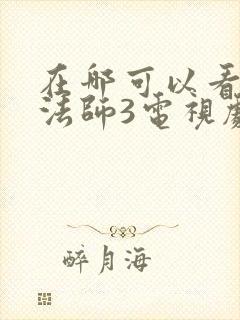 在哪可以看
法師3電視劇
醉月海